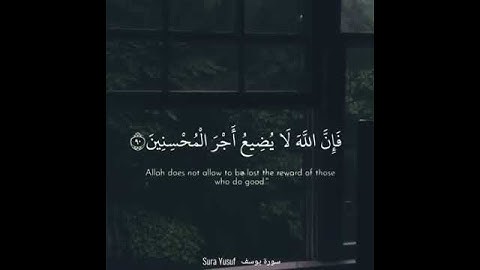 فَإِنَّ اللَّهَ لَا يُضِيعُ أَجْرَ الْمُحْسِنِينَ ۝٩٠
Allah does not allow to be lost the reward of those
who do good."
Sura Yusuf سورة يوسف